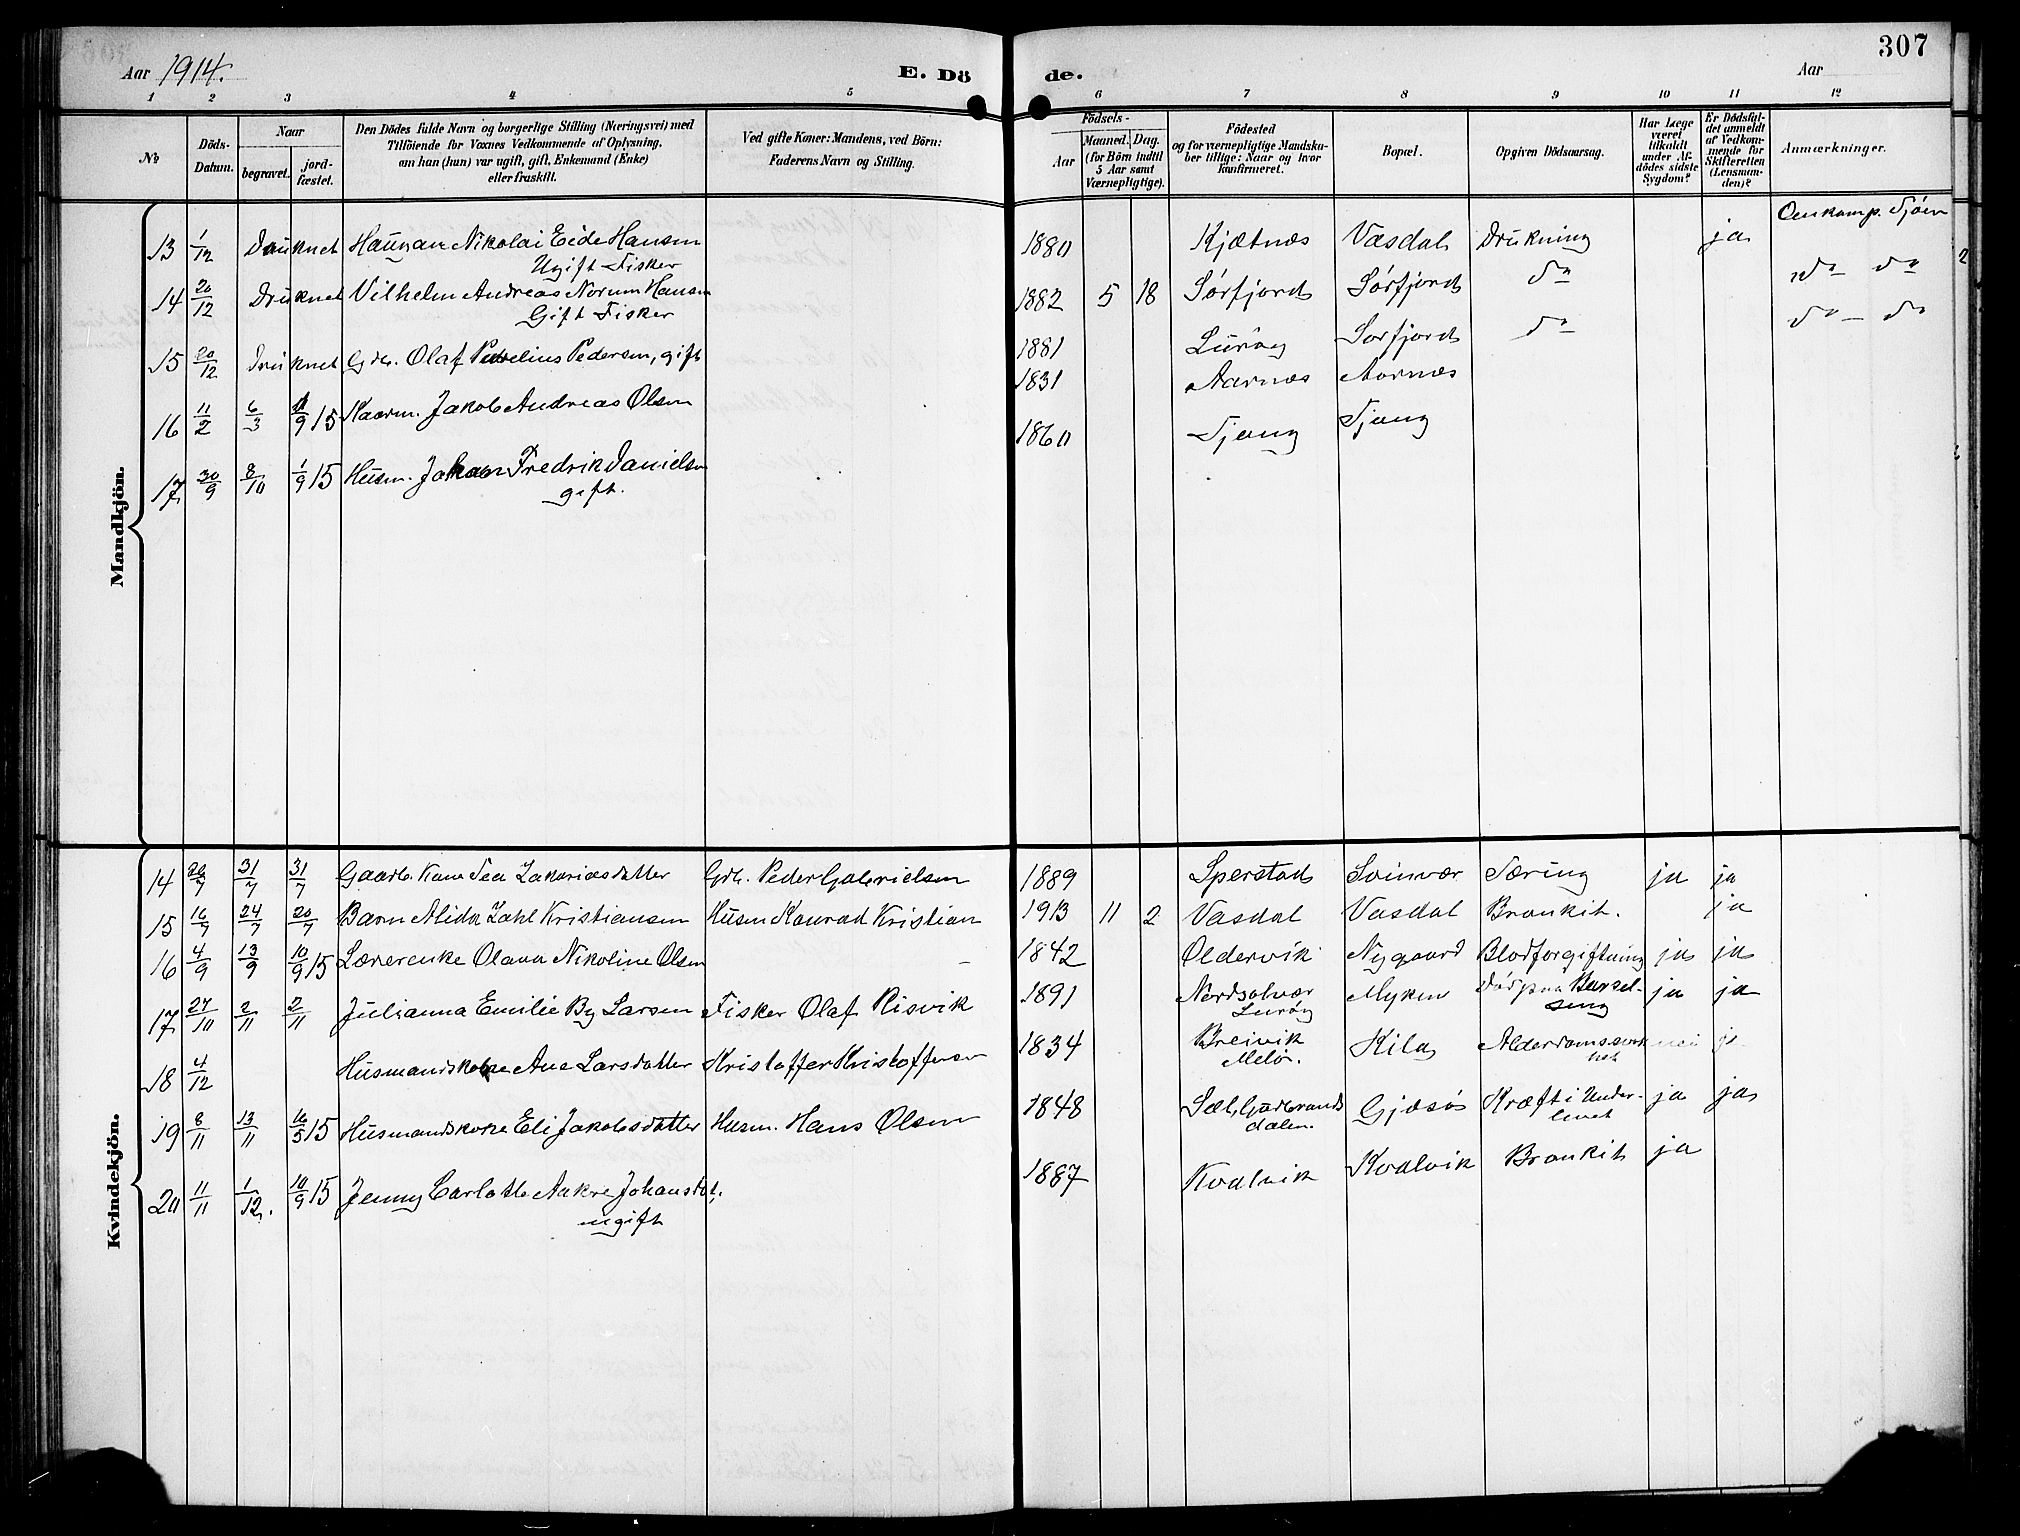 307
Aar 1914. E. Dö de. Aar
1 2 3 4 5 6 7 8 9 10 11 12
No
Döds-Datum.
Naar
begravet.
jord-fæstet.
Den Dödes fulde Navn og borgerlige Stilling (Næringsvei) med
Tilföiende for Voxnes Vedkommende af Oplysning,
om han (hun) var ugift, gift, Enkemand (Enke)
eller fraskilt.
Ved gifte Koner: Mandens, ved Börn:
Faderens Navn og Stilling.
Födsels-
Aar
Maaned. Dag.
(for Börn indtil
5 Aar samt
Værnepligtige).
Födested
og for værnepligtige Mandska-
ber tillige: Naar og hvor
konfirmeret.
Bopæl.
Opgiven Dödsaarsag.
Har Læge
været
tilkaldt
under Af-
dödes sidste
Sygdom?
Er Dödsfal-
det anmeldt
af Vedkom-
mende for
Skifteretten
(Lensman-
den)?
Anmærkninger.
Mandkjön.
13 1/12 Druknet Haugan Nikolai Eide Hansen 1880 Kjætnæs Vasdal Drukning ja Omkomp. Sjøen
Ugift Fisker
14 20/12 Druknet Vilhelm Andreas Norum Hansen 1882 5 18 Sørfjord Sørfjord do do do
Gift Fisker
15 20/12 Druknet Gdb. Olaf Pedersen, gift 1881 Lurøy Sørfjord do do do
16 11/2 6/3 /9 15 Kaarm. Jakob Andreas Olsen 1831 Aarnæs Aarnæs
17 30/9 8/10 1/9 15 Husm. Johan Fredrik Danielsen 1860 Tjong Tjong
gift.
Kvindekjön.
14 26/7 31/7 31/7 Gaarb. Kone Tea Zakariasdatter Gdb. Peder Gabrielsen 1889 Sperstad Svinvær Tæring ja ja
15 16/7 24/7 20/7 Barn Alida Zahl Kristiansen Husm Konrad Kristian 1913 11 2 Vasdal Vasdal Bronkit. ja
16 4/9 13/9 10/9 15 Lærerenke Olava Nikoline Olsen - 1842 Oldervik Nygaard Blodforgiftning ja ja
17 27/10 2/11 2/11 Julianna Emilie By Larsen Fisker Olaf Risvik 1891 Nordsolvær Myken Død paa Barsel- ja ja
Lurøy seng
18 4/12 Husmandskone Ane Larsdatter Kristoffer Kristoffersen 1834 Breivik Kila Alderdomssvak nei ja
Melø. het
19 8/11 13/11 16/5 15 Husmandskone Eli Jakobsdatter Husm. Hans Olsen 1848 Sæl, Gudbrands Gjæsøs Kræft i Under- ja ja
dalen. livet
20 11/11 1/12. 10/9 15 Jenny Carlotte Aakre Johansdat. 1887 Kvalvik Kvalvik Bronkit ja
ugift